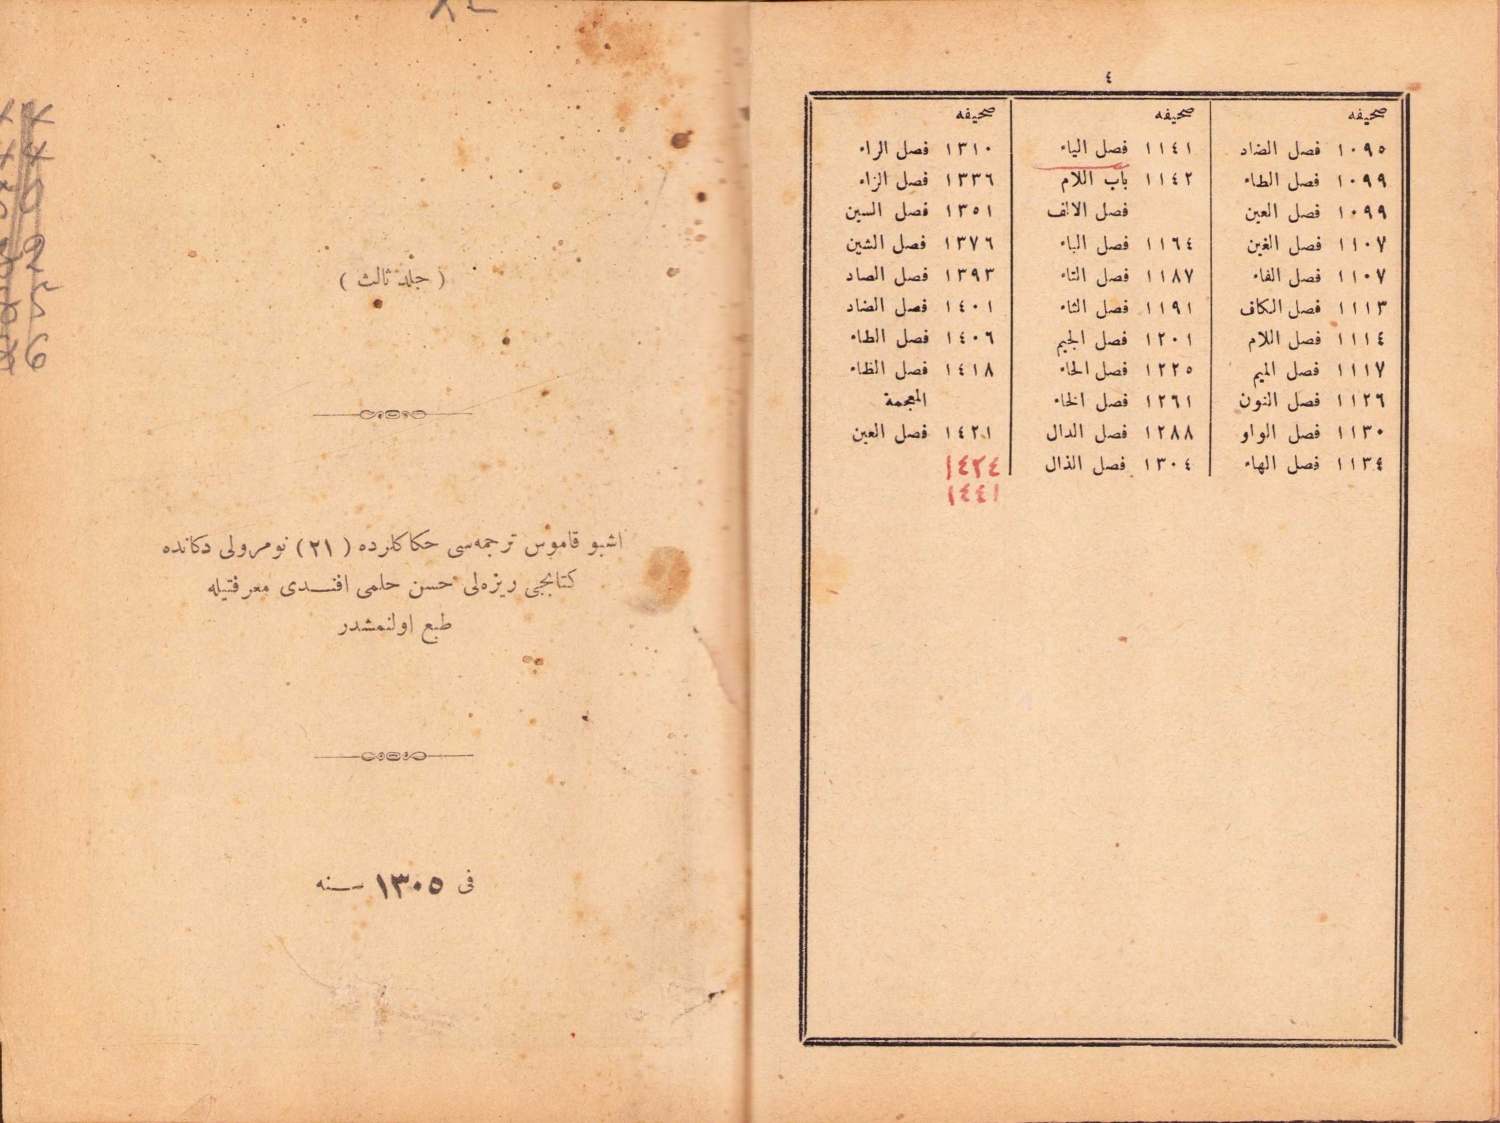 ٤
صحيفه
١٠٩٥ فصل الضاد
١٠٩٩ فصل الطاء
١٠٩٩ فصل العين
١١٠٧ فصل الغين
١١٠٧ فصل الفاء
١١١٣ فصل الكاف
١١١٤ فصل اللام
١١١٧ فصل الميم
١١٢٦ فصل النون
١١٣٠ فصل الواو
١١٣٤ فصل الهاء
صحيفه
١١٤١ فصل الياء
١١٤٢ باب اللام
فصل الالف
١١٦٤ فصل الباء
١١٨٧ فصل التاء
١١٩١ فصل الثاء
١٢٠١ فصل الجيم
١٢٢٥ فصل الحاء
١٢٦١ فصل الخاء
١٢٨٨ فصل الدال
١٣٠٤ فصل الذال
صحيفه
١٣١٠ فصل الراء
١٣٣٦ فصل الزاء
١٣٥١ فصل السين
١٣٧٦ فصل الشين
١٣٩٣ فصل الصاد
١٤٠١ فصل الضاد
١٤٠٦ فصل الطاء
١٤١٨ فصل الظاء
المعجمة
١٤٢١ فصل العين
١٤٢٤
١٤٤١
( جلد ثالث )
اشبو قاموس ترجمه‌سى حكاكلرده ( ٢١ ) نومرولى دكانده
كتابجى ريزه‌لى حسن حلمى افندى معرفتيله
طبع اولنمشدر
فى ١٣٠٥ سنه